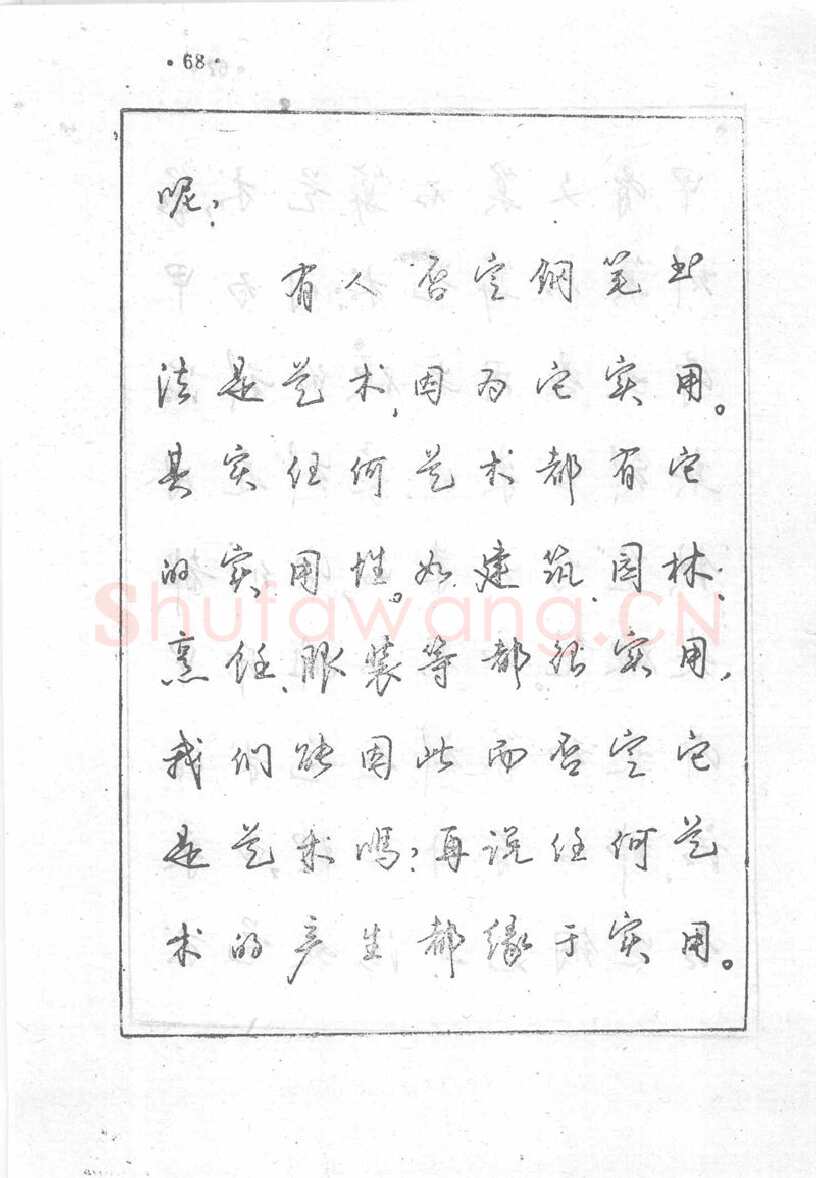 ·68·
呢?
有人否定钢笔书
法是艺术,因为它实用。
其实任何艺术都有它
的实用性。如建筑、园林、
烹饪、服装等都很实用,
我们能因此而否定它
是艺术吗?再说任何艺
术的产生都缘于实用。
Shufawang.CN